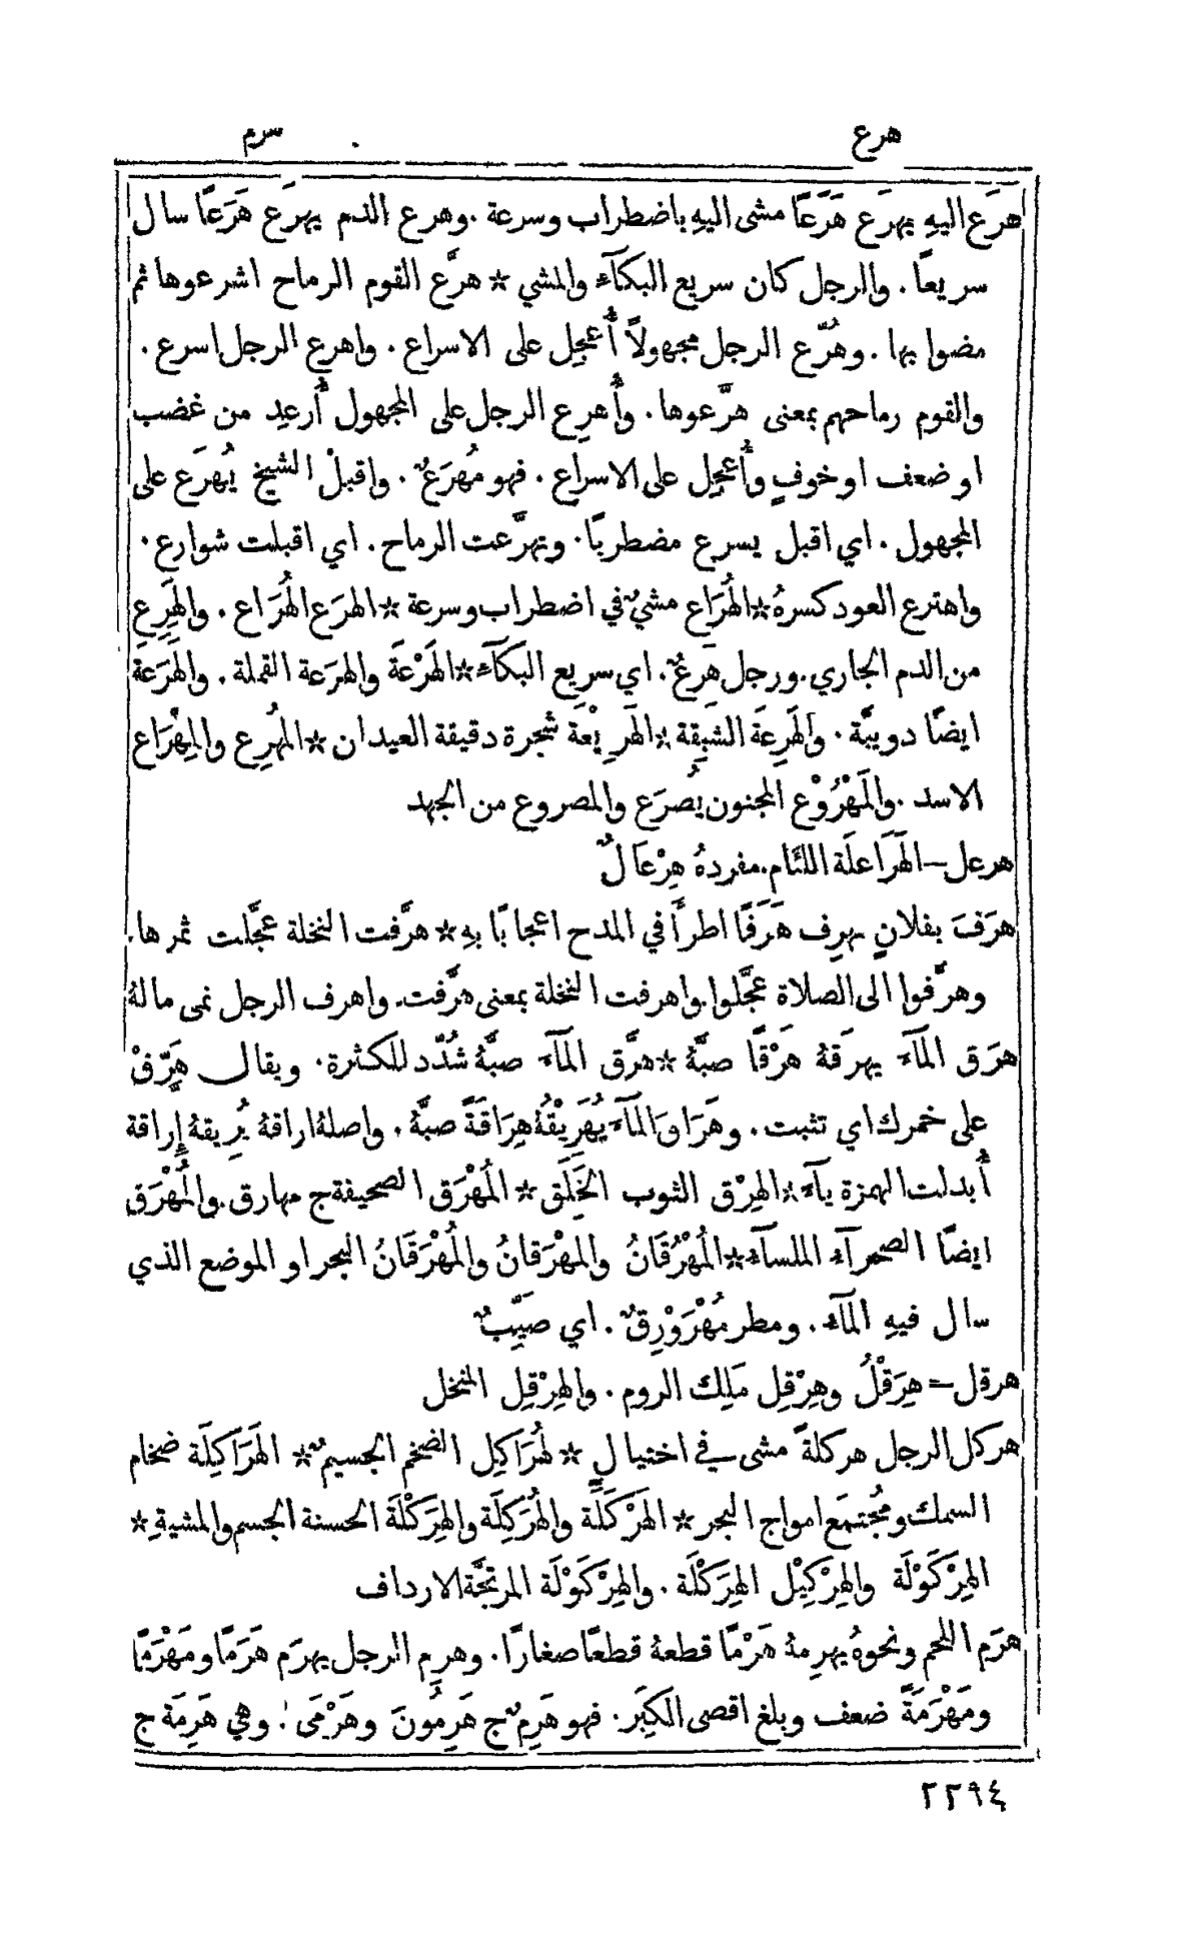 هرع هرم
هرَع اليهِ يهرَع هَرَعًا مشى اليهِ باضطراب وسرعة . وهرع الدم يهرَع هَرَعًا سال
سريعًا . والرجل كان سريع البكآء والمشي * هرَّع القوم الرماح اشرعوها ثم
مضوا بها . وهُرّع الرجل مجهولًا أُعجِل على الاسراع . واهرع الرجل اسرع .
والقوم رماحهم بمعنى هرَّعوها . وأُهرِع الرجل على المجهول أُرعِد من غضب
او ضعف او خوفٍ وأُعجِل على الاسراع . فهو مُهرَعٌ . واقبلْ الشيخ يُهرَع على
المجهول . اي اقبل يسرع مضطربًا . وتهرَّعت الرماح . اي اقبلت شوارع .
واهترع العود كسرهُ * الهُرَاع مشيٌ في اضطراب وسرعة * الهرَع الهُرَاع . والهَرِع
من الدم الجاري . ورجل هَرِعٌ . اي سريع البكآء * الهَرْعَة والهرَعة القملة . والهَرَعَة
ايضًا دويبَّة . والهَرِعَة الشبِقة * الهَرِيْعة شجرة دقيقة العيدان * المُهرِع والمِهْرَاع
الاسد . والمَهْرُوْع المجنون يُصرَع والمصروع من الجهد
هرعل – الهَرَاعلَة اللئام . مفردهُ هِرْعَالٌ
هرَفَ بفلانٍ يهرِف هَرَفًا اطرأَ في المدح اعجابًا بهِ * هرَّفت النخلة عجَّلت ثمرها .
وهرَّفوا الى الصلاة عجَّلوا . واهرفت النخلة بمعنى هرَّفت . واهرف الرجل نمى مالهُ
هرَق المآء يهرَقهُ هَرْقًا صبَّهُ * هرَّق المآء صبَّهُ شُدّد للكثرة . ويقال هَرِّقْ
على خمرك اي تثبت . وهَرَاقَ المآءَ يُهَرِيْقُهُ هِرَاقَةً صبَّهُ . واصلهُ اراقهُ يُرِيقهُ إِراقة
أُبدلت الهمزة يآء * الهِرْق الثوب الخَلَق * المُهْرَق الصحيفة ج مهارق . والمُهْرَق
ايضًا الصحرآء الملسآء * المُهْرُقَانُ والمهْرَقانُ والمُهْرَقَانُ البحر او الموضع الذي
سال فيهِ المآء . ومطر مُهْرَوْرِقٌ . اي صَيِّبٌ
هرقل = هِرَقْلُ وهِرْقِل مَلِك الروم . والهِرْقِل المنخل
هركل الرجل هركلةً مشى في اختيالٍ * لهُرَاكِل الضخم الجسيمٌ * الهَرَاكِلَة ضخام
السمك ومُجتمَع امواج البحر * الهَرْكَلَة والهُرَكِلَة والهِرَكْلَة الحسنة الجسم والمشيةِ *
الهِرْكَوْلَة والهِرْكِيْل الهِرَكْلَة . والهِرْكَوْلَة المرتجَّة الارداف
هرَم اللحم ونحوهُ يهرِمهُ هَرْمًا قطعهُ قطعًا صغارًا . وهرِم الرجل يهرَم هَرَمًا ومَهْرَمًا
ومَهْرَمَةً ضعف وبلغ اقصى الكِبَر . فهو هَرِمٌ ج هَرِمُونَ وهَرْمَى . وهي هَرِمَة ج
٢٢٩٤